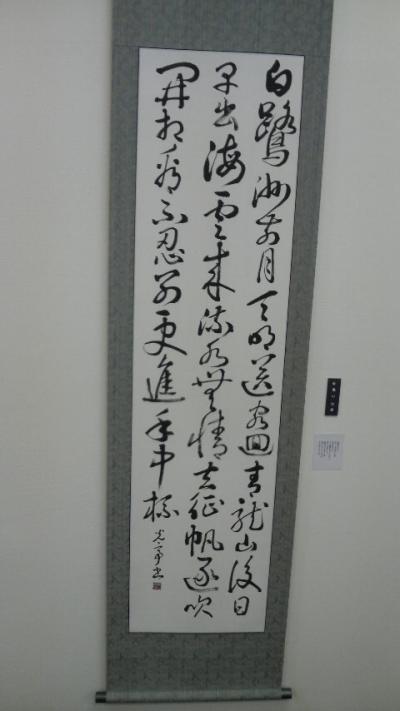 白鷺洲前月天明送客回青龍山後日
早出海雲來流水無情去征帆逐吹
開相看不忍別更進手中杯
書